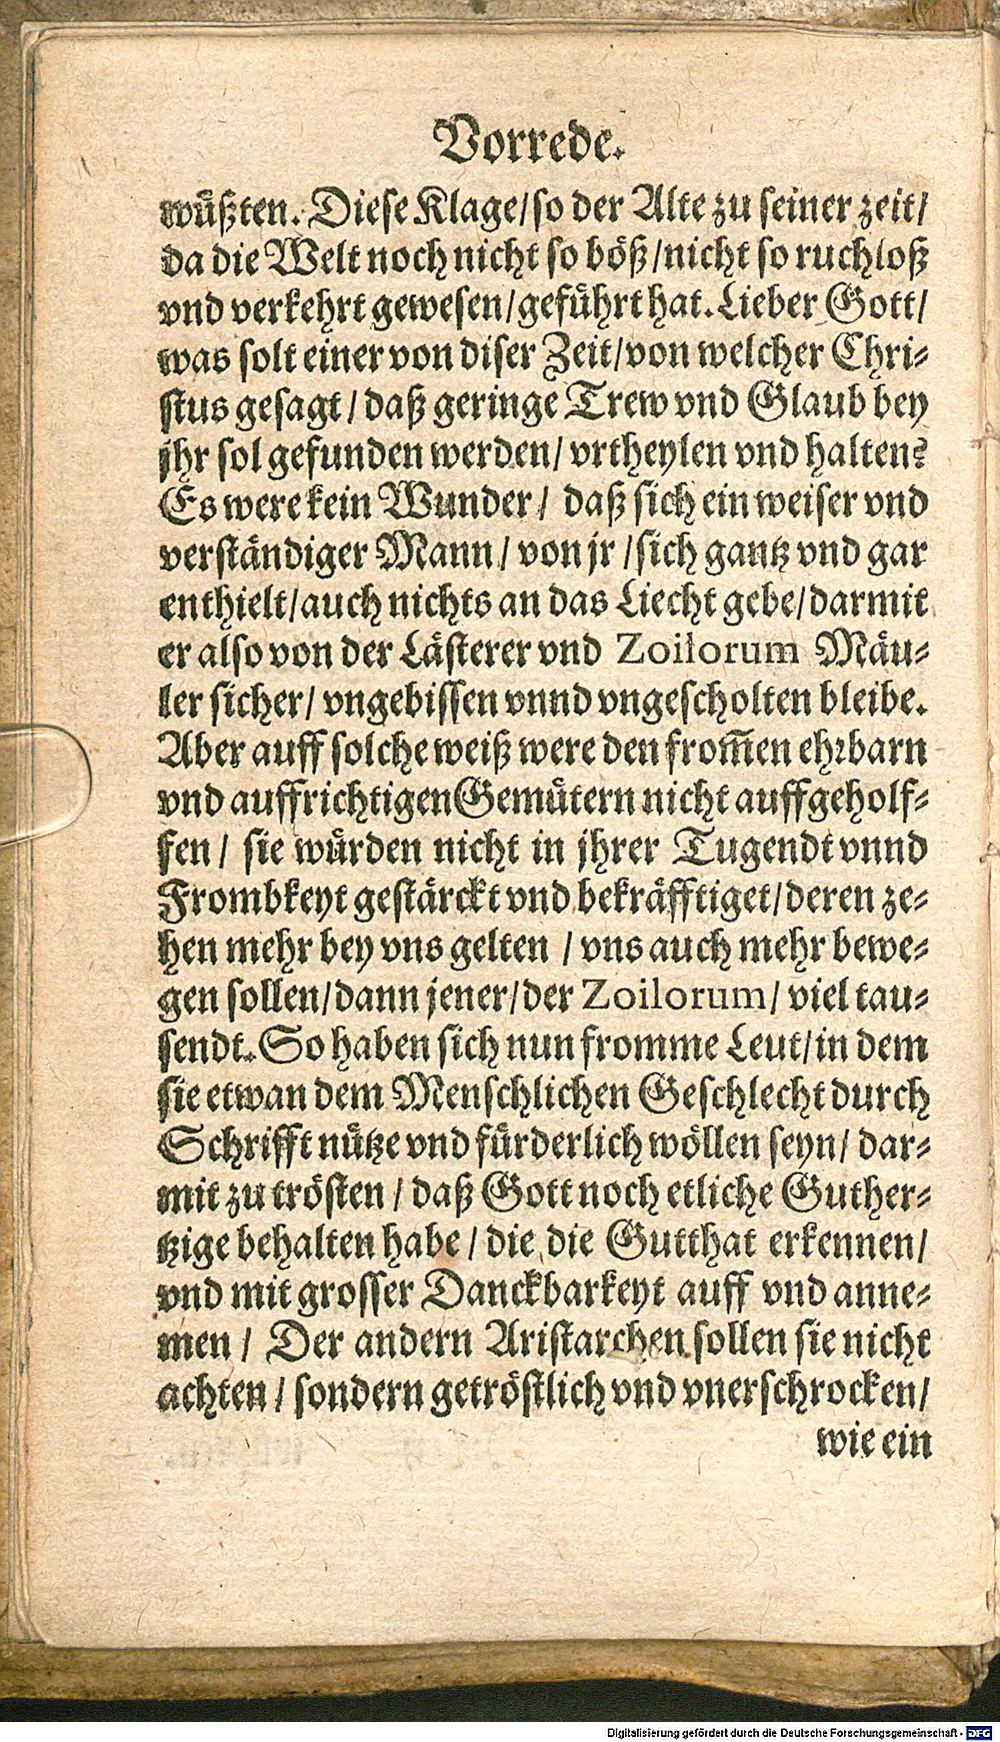 Vorrede.
wüßten. Diese Klage/so der Alte zu seiner zeit/
da die Welt noch nicht so böß/nicht so ruchloß
vnd verkehrt gewesen/geführt hat. Lieber Gott/
was solt einer von diser Zeit/von welcher Chri-
stus gesagt/daß geringe Trew vnd Glaub bey
jhr sol gefunden werden/vrtheylen vnd halten?
Es were kein Wunder/ daß sich ein weiser vnd
verständiger Mann/ von jr/sich gantz vnd gar
enthielt/auch nichts an das Liecht gebe/darmit
er also von der Lästerer vnd Zoilorum Mäu-
ler sicher/ vngebissen vnnd vngescholten bleibe.
Aber auff solche weiß were den from̃en ehrbarn
vnd auffrichtigen Gemütern nicht auffgeholf-
fen/ sie würden nicht in jhrer Tugendt vnnd
Frombkeyt gestärckt vnd bekräfftiget/deren ze-
hen mehr bey vns gelten / vns auch mehr bewe-
gen sollen/dann jener/der Zoilorum/ viel tau-
sendt. So haben sich nun fromme Leut/in dem
sie etwan dem Menschlichen Geschlecht durch
Schrifft nütze vnd fürderlich wöllen seyn/ dar-
mit zu trösten / daß Gott noch etliche Guther-
tzige behalten habe / die die Gutthat erkennen/
vnd mit grosser Danckbarkeyt auff vnd anne-
men / Der andern Aristarchen sollen sie nicht
achten / sondern getröstlich vnd vnerschrocken/
wie ein
Digitalisierung gefördert durch die Deutsche Forschungsgemeinschaft - DFG